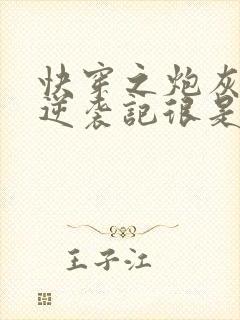 快穿之炮灰
逆袭記很是
王子江